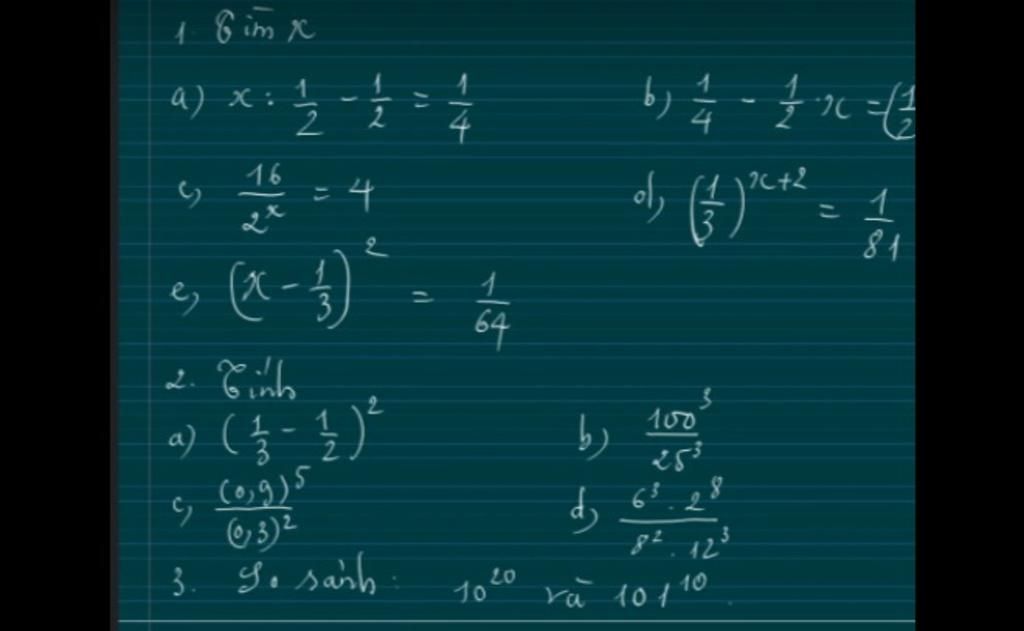 1. Tìm x
a) x : 1/2 - 1/2 = 1/4 b) 1/4 - 1/2 · x = (1/2
c) 16/2^x = 4 d) (1/3)^(x+2) = 1/81
e) (x - 1/3)^2 = 1/64
2. Tính
a) (1/3 - 1/2)^2 b) 100^3/25^3
c) (0,9)^5/(0,3)^2 d) 6^3 . 2^8/8^2 . 12^3
3. So sánh: 10^20 và 101^10.